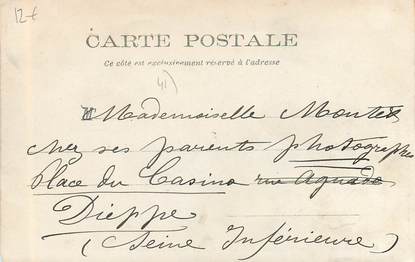 12 €
CARTE POSTALE
Ce côté est exclusivement réservé à l'adresse
41)
Mademoiselle
chez ses parents photographes
Place du Casino rue Aguado
Dieppe
(Seine Inférieure)